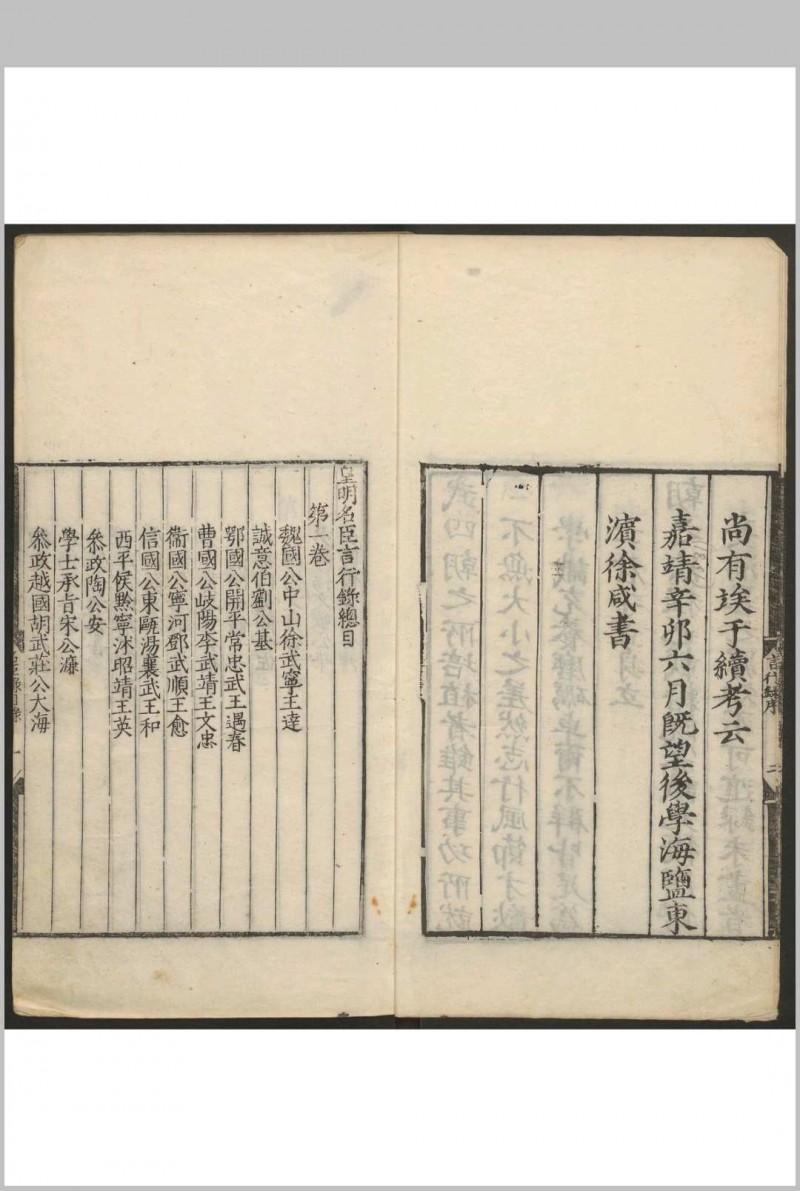 尚有埃于續考云
嘉靖辛卯六月旣望後學海鹽東
濵徐咸書
言行錄序
二
皇明名臣言行錄總目
第一卷
魏國公中山徐武寧王達
誠意伯劉公基
鄂國公開平常忠武王遇春
曹國公岐陽李武靖王文忠
衞國公寧河鄧武順王愈
信國公東甌湯襄武王和
西平侯黔寧沐昭靖王英
叅政陶公安
學士承旨宋公濂
叅政越國胡武莊公大海